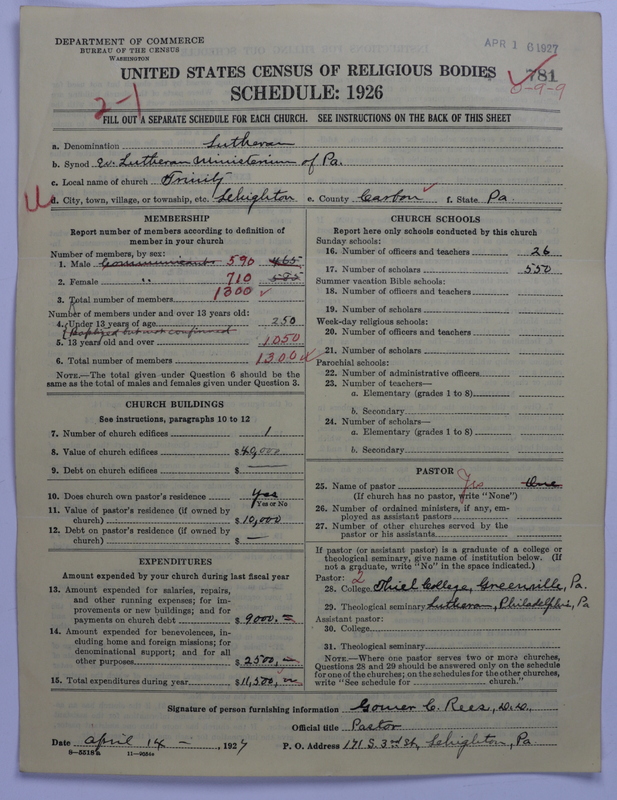 DEPARTMENT OF COMMERCE
BUREAU OF THE CENSUS
WASHINGTON
APR 16 1927
UNITED STATES CENSUS OF RELIGIOUS BODIES
781
0-9-9
SCHEDULE: 1926
2-1
FILL OUT A SEPARATE SCHEDULE FOR EACH CHURCH. SEE INSTRUCTIONS ON THE BACK OF THIS SHEET
a. Denomination Lutheran
b. Synod Ev. Lutheran Ministerium of Pa.
c. Local name of church Trinity
d. City, town, village, or township, etc. Lehighton e. County Carbon f. State Pa.
MEMBERSHIP
Report number of members according to definition of
member in your church
Number of members, by sex:
1. Male Communicants 590 465
2. Female " 710 585
3. Total number of members 1300
Number of members under and over 13 years old:
4. Under 13 years of age 250
(Baptized but not confirmed)
5. 13 years old and over 1050
6. Total number of members 1300
NOTE.—The total given under Question 6 should be the
same as the total of males and females given under Question 3.
CHURCH BUILDINGS
See instructions, paragraphs 10 to 12
7. Number of church edifices 1
8. Value of church edifices $40,000
9. Debt on church edifices $ —
10. Does church own pastor's residence Yes
Yes or No
11. Value of pastor's residence (if owned by
church) $10,000
12. Debt on pastor's residence (if owned by
church) $ —
EXPENDITURES
Amount expended by your church during last fiscal year
13. Amount expended for salaries, repairs,
and other running expenses; for im-
provements or new buildings; and for
payments on church debt $9000.
14. Amount expended for benevolences, in-
cluding home and foreign missions; for
denominational support; and for all
other purposes $2500,
15. Total expenditures during year $11,500,
CHURCH SCHOOLS
Report here only schools conducted by this church
Sunday schools:
16. Number of officers and teachers 26
17. Number of scholars 550
Summer vacation Bible schools:
18. Number of officers and teachers
19. Number of scholars
Week-day religious schools:
20. Number of officers and teachers
21. Number of scholars
Parochial schools:
22. Number of administrative officers
23. Number of teachers—
a. Elementary (grades 1 to 8)
b. Secondary
24. Number of scholars—
a. Elementary (grades 1 to 8)
b. Secondary
PASTOR
25. Name of pastor Yes One
(If church has no pastor, write "None")
26. Number of ordained ministers, if any, em-
ployed as assistant pastors
27. Number of other churches served by the
pastor or his assistants
If pastor (or assistant pastor) is a graduate of a college or
theological seminary, give name of institution below. (If
not a graduate, write "No" in the space indicated.)
Pastor: 2
28. College Thiel College, Greenville, Pa.
29. Theological seminary Lutheran, Philadelphia, Pa
Assistant pastor:
30. College
31. Theological seminary
NOTE.—Where one pastor serves two or more churches,
Questions 28 and 29 should be answered only on the schedule
for one of the churches; on the schedules for the other churches,
write "See schedule for church."
Signature of person furnishing information Gomer C. Rees, D.D.
Official title Pastor
Date April 14 - , 1927 P. O. Address 171 S. 3rd St, Lehighton, Pa.
8—5518a 11—9554